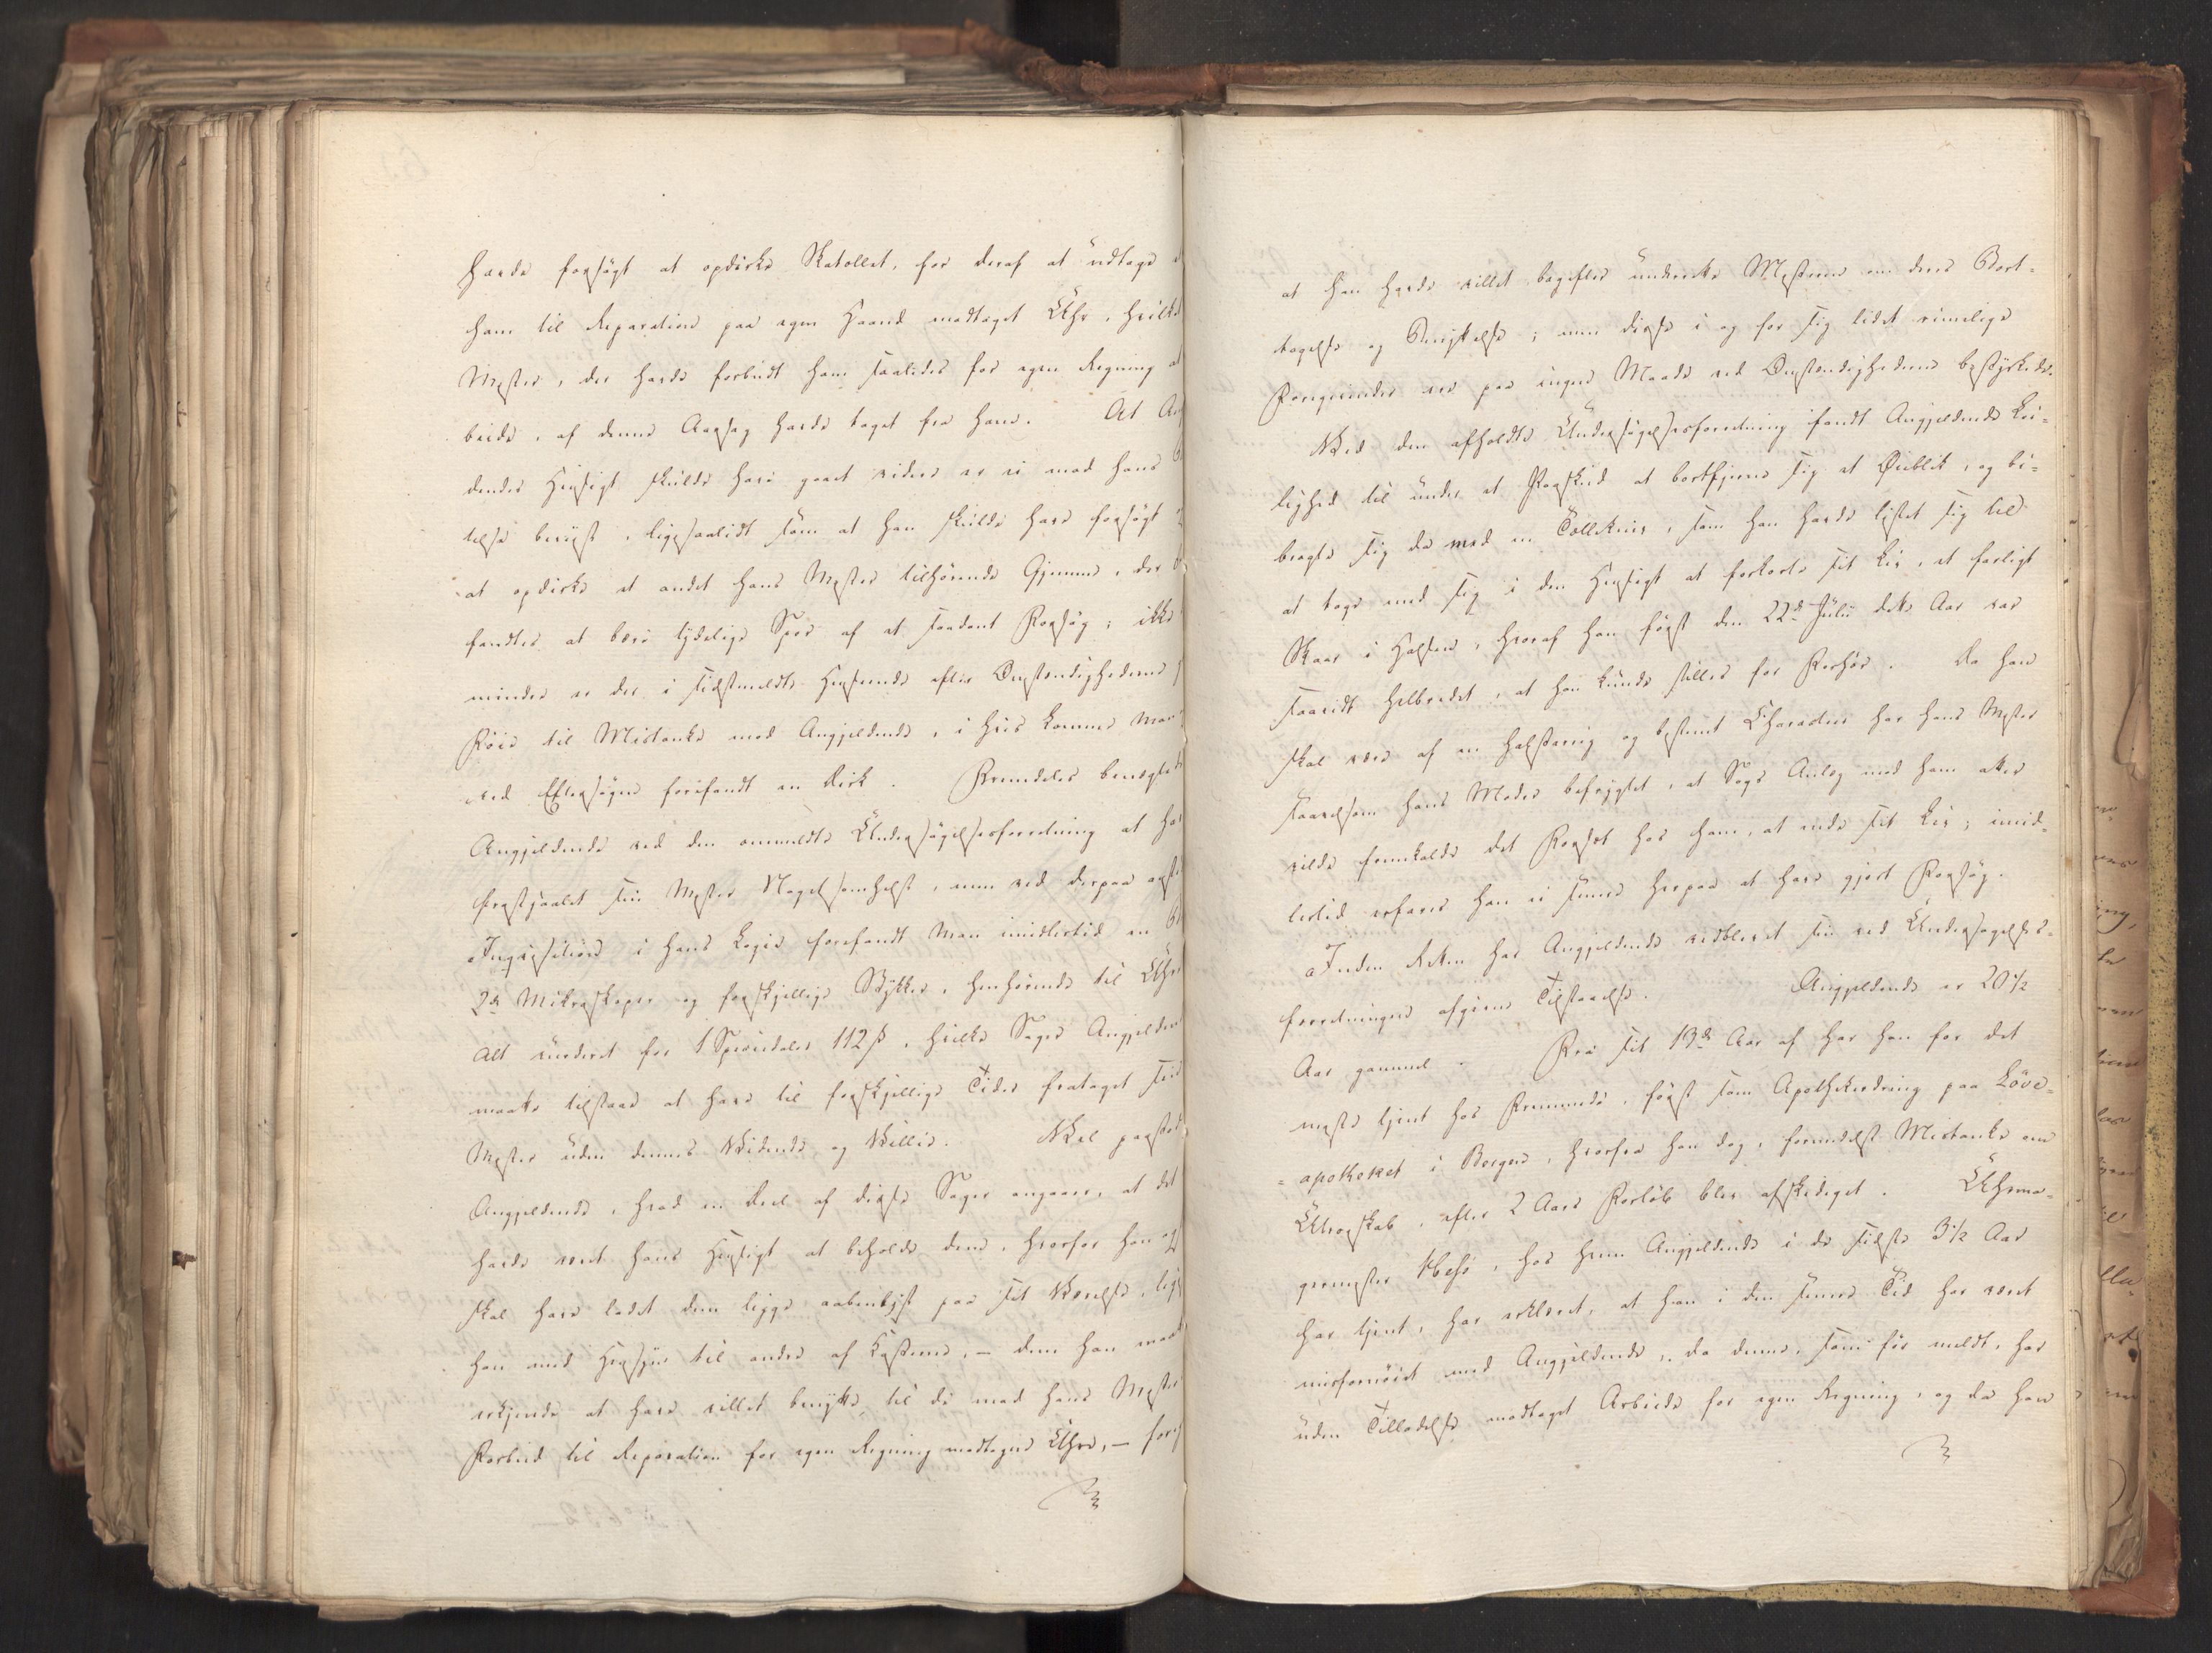 havde forsögt at opdirke Skatollet, for deraf at udtage
ham til Reparation paa egen Haand modtaget Uhr, hvilket
Mester, der havde forbudt ham saaledes for egen Regning at
beide, af denne Aarsag havde taget fra ham. At Ang
dendes Hensigt skulde have gaaet videre er ei mod hans
telse beviist, ligesaalidt som at han skulde have forsögt
at opdirke et andet hans Mester tilhörende Gjemme, der
fandtes at bære tydelige Spor af et saadant Forsög; ikke
mindre er der i sidstmeldte Henseende efter Omstændighederne
Föie til Mistanke mod Angjeldende, i hvis Lomme man
ved Eftersögen forefandt en Dirk. Fremdeles benegtede
Angjeldende ved den ommeldte Undersögelsesforretning at ha
frastjaalet sin Mester Noget somhelst, men ved derpaa
Inqvisition i hans Logis forefandt man imidlertid en
2de Mikroskoper og forskjellige Stykker, henhörende til Uhr
Alt vurderet for 1 Speciedaler 112 ß, hvilke Sager Angjelden
maatte tilstaae at have til forskjellige Tider frataget sin
Mester uden dennes Vidende og Villie. Vel paastod
Angjeldende, hvad en Deel af disse Sager angaaer, at det
havde været hans Hensigt at beholde dem, hvorfor han og
skal have ladet dem ligge aabenlyst paa sit Værelse, lige
han med Hensyn til andre af Kosterne, – dem han maat
erkjende at have villet benytte til de mod hans Mesters
Forbud til Reparation for egen Regning modtagne Uhre, –
at han havde villet bagefter underrette Mesteren om deres Bort-
tagelse og Benyttelse; men disse i og for sig lidet rimelige
Foregivender ere paa ingen Maade ved Omstændighederne bestyrkede.
Ved den afholdte Undersögelsesforretning fandt Angjeldende Lei-
lighed til under et Paaskud at bortfjerne sig et Öieblik, og bi-
bragte sig da med en Tollekniv, som han havde listet sig til
at tage med sig i den Hensigt at forkorte sit Liv, et farligt
Skaar i Halsen, hvoraf han först den 22de Julii dette Aar var
saavidt helbredet, at han kunde stilles for Forhör. Da han
skal være af en halsstarrig og bestemt Charakteer har hans Mester
saavelsom hans Moder befrygtet, at Sags Anlæg mod ham atter
vilde fremkalde det Forsæt hos ham, at ende sit Liv; imid-
lertid erfares han ei senere herpaa at have gjort Forsög.
Inden Retten har Angjeldende vedblevet sin ved Undersögelses-
forretningen afgivne Tilstaaelse. Angjeldende er 20 1/2
Aar gammel. Fra sit 13de Aar af har han for det
meste tjent hos Fremmede, först som Apothekerdreng paa Löve-
=apotheket i Bergen, hvorfra han dog, formedelst Mistanke om
Utroskab, efter 2 Aars Forlöb blev afskediget. Uhrma-
germester, hos hvem Angjeldende i de sidste 3 1/2 Aar
har tjent, har erklæret, at han i den senere Tid har været
misfornöiet med Angjeldende, da denne, som för meldt, har
uden Tilladelse modtaget Arbeide for egen Regning, og da han